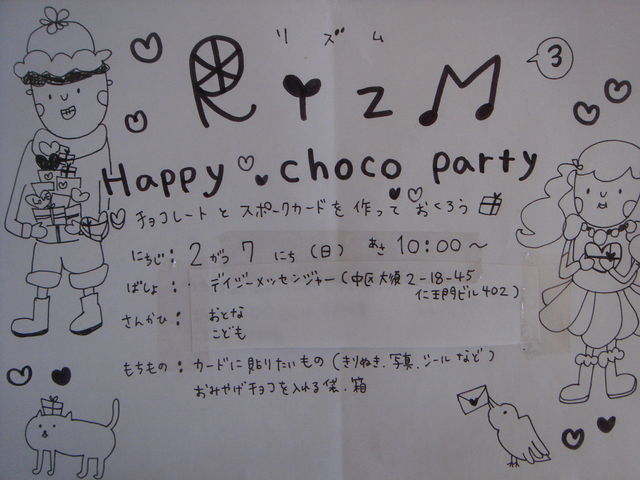 リズム
RYZM 3
Happy choco party
チョコレートとスポークカードを作っておくろう
にちじ：2がつ7にち（日）あさ10:00〜
ばしょ：デイジーメッセンジャー（中区大須2-18-45
仁王門ビル402）
さんかひ：おとな
こども
もちもの：カードに貼りたいもの（きりぬき、写真、シールなど）
おみやげチョコを入れる袋、箱